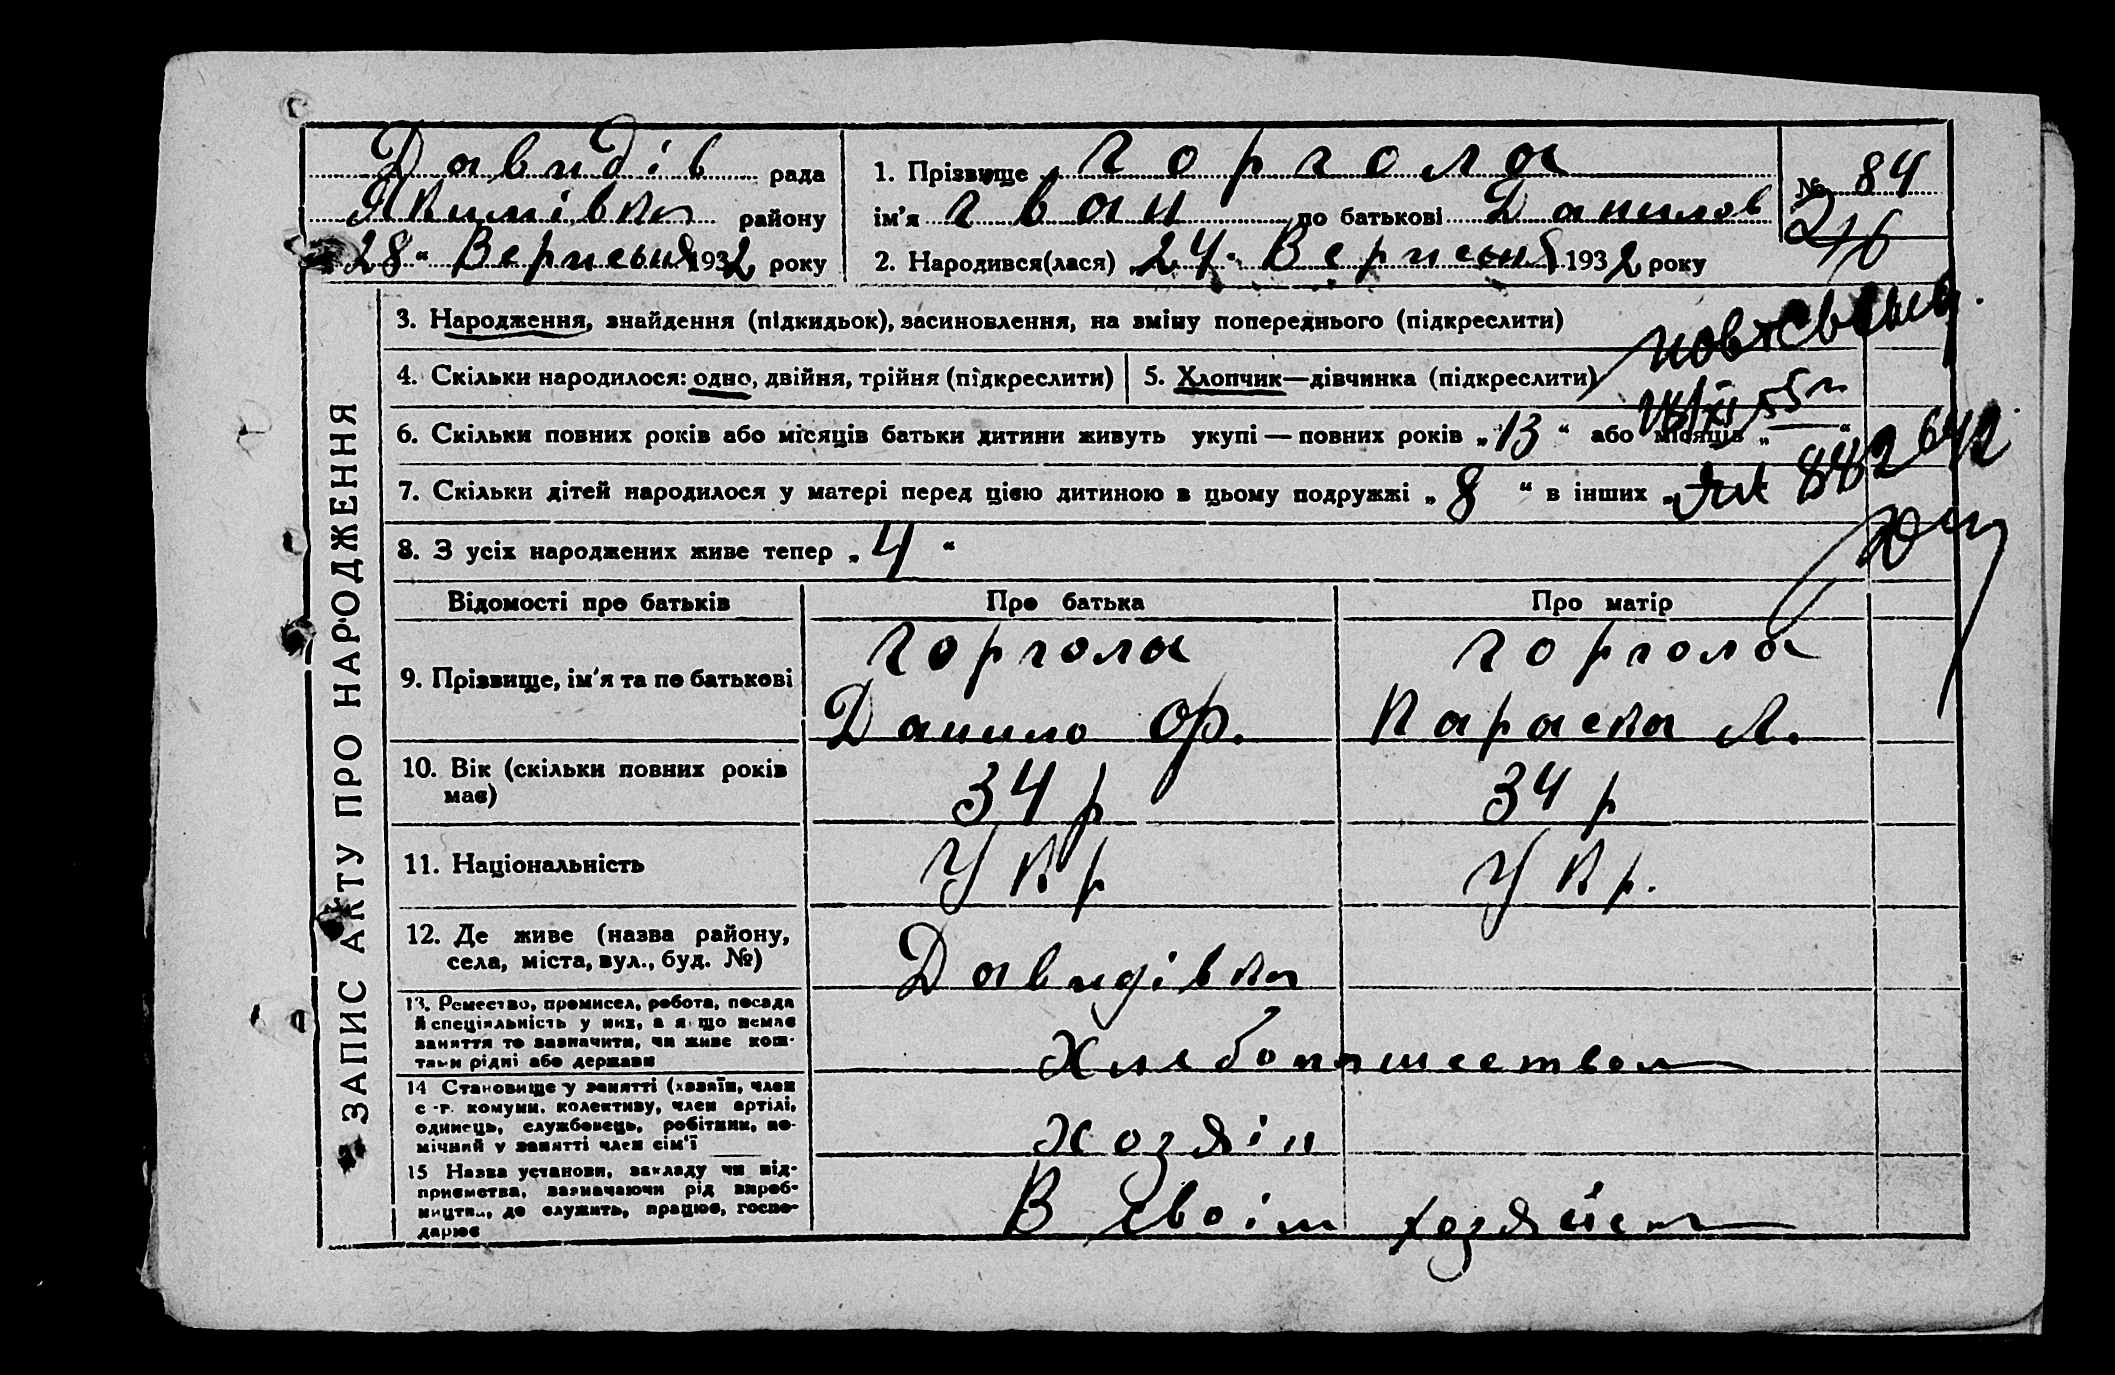 Давидів рада
Якимівка району
28 " Вересня 1932 року
1. Прізвище Горгола
ім'я Іван по батькові Данилов
2. Народився(лася) „24" Вересня 1932 року
№ 84
3. Народження, знайдення (підкидьок), засиновлення, на зміну попереднього (підкреслити)
4. Скільки народилося: одно, двійня, трійня (підкреслити)
5. Хлопчик—дівчинка (підкреслити)
6. Скільки повних років або місяців батьки дитини живуть укупі — повних років „13" або місяців „—"
7. Скільки дітей народилося у матері перед цією дитиною в цьому подружжі „8" в інших „
882642
8. З усіх народжених живе тепер „4"
ЗАПИС АКТУ ПРО НАРОДЖЕННЯ
Відомості про батьків
Про батька
Про матір
9. Прізвище, ім'я та по батькові
Горгола
Данило Ор.
Горгола
Параска Л.
10. Вік (скільки повних років
має)
34 р
34 р
11. Національність
Укр
Укр.
12. Де живе (назва району,
села, міста, вул., буд. №)
Давидівка
13. Ремество, промисел, робота, посада
й спеціяльність у них, а якщо немає
заняття то зазначити, чи живе кош-
тами рідні або держави
Хлебопашеством
14 Становище у занятті (хазяїн, член
с.-г. комуни, колективу, член артілі,
одинець, службовець, робітник, по-
мічний у занятті член сім'ї
хозяін
15 Назва установи, закладу чи під-
приємства, зазначаючи рід вироб-
ництва, де служить, працює, госпо-
дарює
В своім хозяйст